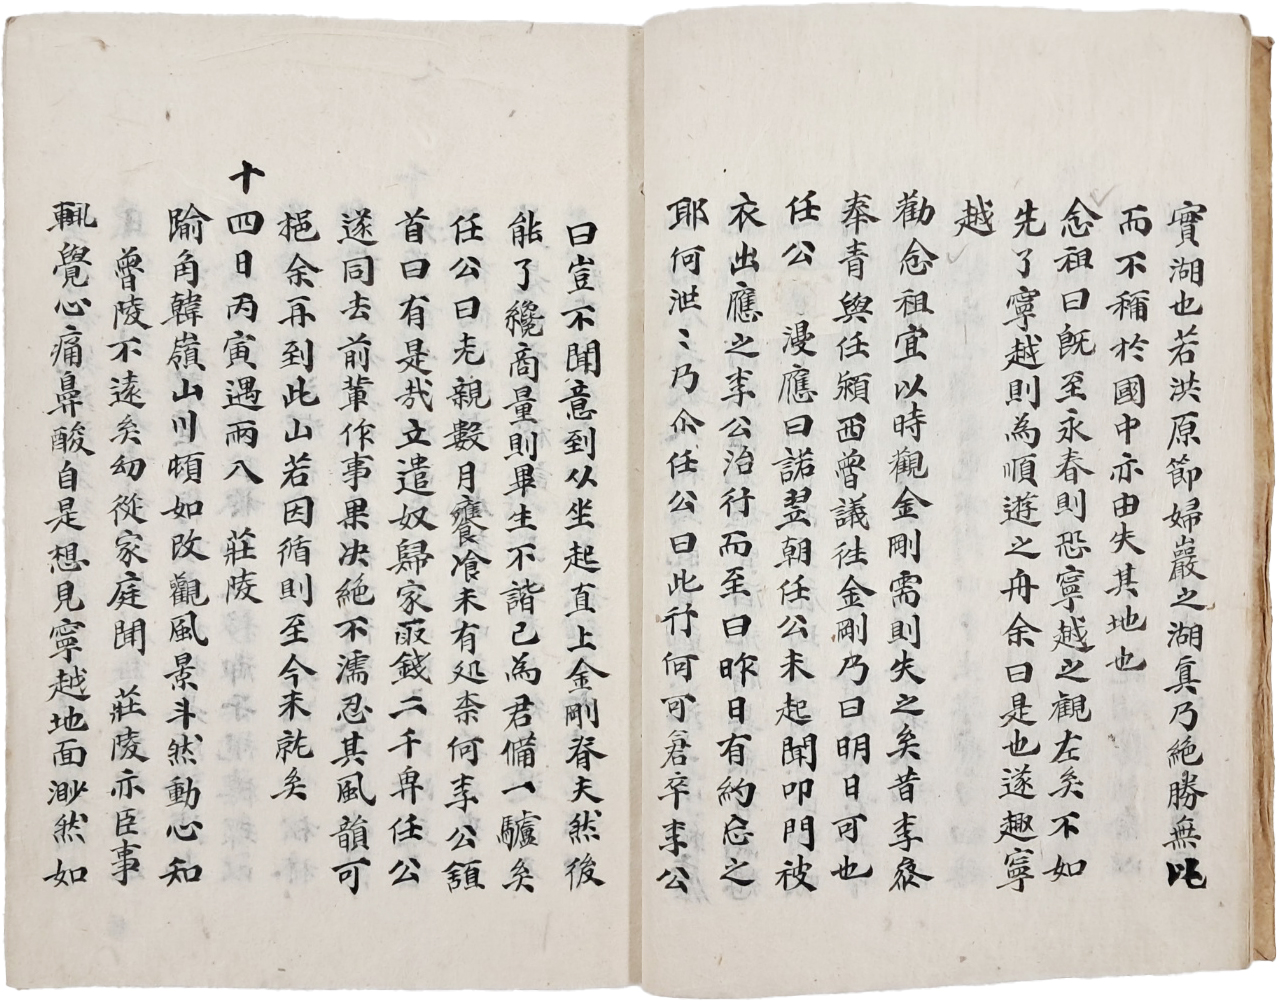 實湖也若洪原節婦巖之湖真乃絶勝無比
而不稱於國中亦由失其地也
念祖曰旣至永春則恐寧越之觀左矣不如
先了寧越則為順遊之舟余曰是也遂趣寧
越
勸念祖宜以時觀金剛需則失之矣昔李叅
奉青與任潁西曾議徃金剛乃曰明日可也
任公 漫應曰諾翌朝任公未起聞叩門被
衣出應之李公治行而至曰昨日有約忘之
耶何泄〻乃尒任公曰此行何可倉卒李公
曰豈不聞意到以坐起直上金剛脊夫然後
能了纔商量則畢生不諧已為君備一驢矣
任公曰老親數月饔飡未有処柰何李公頷
首曰有是哉立遣奴歸家㪅錢二千㢲任公
遂同去前輩作事果决絶不濡忍其風韻可
挹余再到此山若因循則至今未就矣
十四日丙寅遇雨入 莊陵
踰角韓嶺山川頓如改觀風景斗然動心知
曾陵不逺矣幼從家庭聞 莊陵亦臣事
輒覺心痛鼻酸自是想見寧越地面渺然如